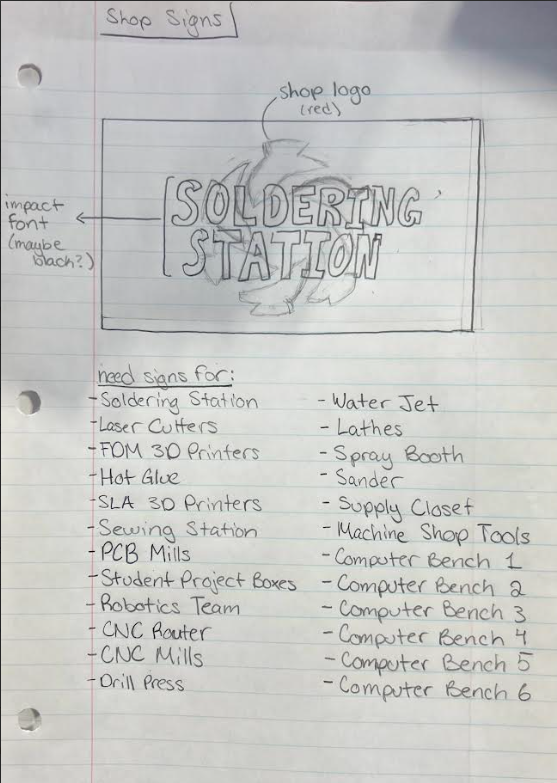 Shop Signs
shop logo
(red)
impact
font
(maybe
black?)
SOLDERING
STATION
need signs for:
- Soldering Station
- Laser Cutters
- FDM 3D Printers
- Hot Glue
- SLA 3D Printers
- Sewing Station
- PCB Mills
- Student Project Boxes
- Robotics Team
- CNC Router
- CNC Mills
- Drill Press
- Water Jet
- Lathes
- Spray Booth
- Sander
- Supply Closet
- Machine Shop Tools
- Computer Bench 1
- Computer Bench 2
- Computer Bench 3
- Computer Bench 4
- Computer Bench 5
- Computer Bench 6